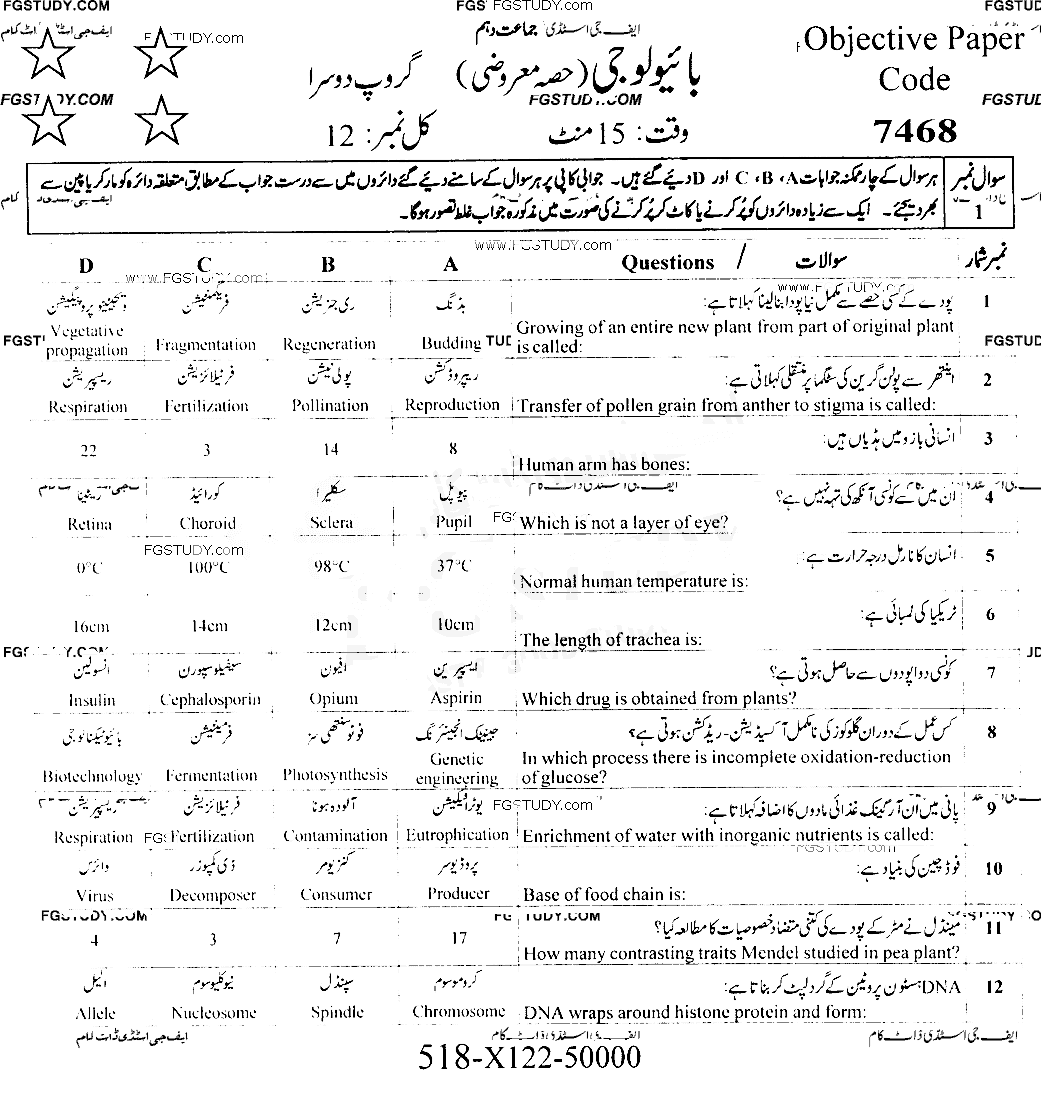 FGSTUDY.COM FGSTUDY.com
ایف جی اسٹڈی جماعت دہم
FGSTUDY.com
Objective Paper
بائیولوجی (حصہ معروضی) گروپ دوسرا
Code
FGSTUDY.COM
7468
وقت: 15 منٹ کل نمبر: 12
سوال نمبر 1
ہر سوال کے چار ممکنہ جوابات A، B، C اور D دیئے گئے ہیں۔ جوابی کاپی پر ہر سوال کے سامنے دیئے گئے دائروں میں سے درست جواب کے مطابق متعلقہ دائرہ کو مارکر یا پین سے
بھر دیجئے۔ ایک سے زیادہ دائروں کو پُر کرنے یا کاٹ کر پُر کرنے کی صورت میں مذکورہ جواب غلط تصور ہوگا۔
www.FGSTUDY.com
D C B A Questions / سوالات نمبر شمار
1 پودے کے کسی حصے سے مکمل نیا پودا بنا لینا کہلاتا ہے:
بڈنگ ری جنریشن فریگمنٹیشن ویجیٹیٹو پروپیگیشن
Growing of an entire new plant from part of original plant
is called:
Vegetative propagation Fragmentation Regeneration Budding
2 اینتھر سے پولن گرین کی سٹگما پر منتقلی کہلاتی ہے:
ریپروڈکشن پولی نیشن فرٹیلائزیشن ریسپریشن
Respiration Fertilization Pollination Reproduction Transfer of pollen grain from anther to stigma is called:
3 انسانی بازو میں ہڈیاں ہیں:
22 3 14 8
Human arm has bones:
ایف جی اسٹڈی ڈاٹ کام
4 ان میں سے کونسی آنکھ کی تہہ نہیں ہے؟
پیوپل سکلیرا کورائیڈ ریٹینا
Retina Choroid Sclera Pupil Which is not a layer of eye?
FGSTUDY.com
5 انسان کا نارمل درجہ حرارت ہے:
0°C 100°C 98°C 37°C
Normal human temperature is:
6 ٹریکیا کی لمبائی ہے:
16cm 14cm 12cm 10cm
The length of trachea is:
7 کونسی دوا پودوں سے حاصل ہوتی ہے؟
ایسپرین افیون سیفیلوسپورن انسولین
Insulin Cephalosporin Opium Aspirin Which drug is obtained from plants?
8 کس عمل کے دوران گلوکوز کی نامکمل آکسیڈیشن-ریڈکشن ہوتی ہے؟
جینیٹک انجینئرنگ فوٹوسنتھی سز فرمنٹیشن بائیوٹیکنالوجی
In which process there is incomplete oxidation-reduction
of glucose?
Biotechnology Fermentation Photosynthesis Genetic engineering
9 پانی میں ان آرگینک غذائی مادوں کا اضافہ کہلاتا ہے:
یوٹرافیکیشن آلودہ ہونا فرٹیلائزیشن ریسپریشن
FGSTUDY.com
Respiration Fertilization Contamination Eutrophication Enrichment of water with inorganic nutrients is called:
10 فوڈ چین کی بنیاد ہے:
پروڈیوسر کنزیومر ڈی کمپوزر وائرس
Virus Decomposer Consumer Producer Base of food chain is:
11 مینڈل نے مٹر کے پودے کی کتنی متضاد خصوصیات کا مطالعہ کیا؟
4 3 7 17
How many contrasting traits Mendel studied in pea plant?
12 DNA ہسٹون پروٹین کے گرد لپٹ کر بناتا ہے:
کروموسوم سپنڈل نیوکلیوسوم الیل
Allele Nucleosome Spindle Chromosome DNA wraps around histone protein and form:
ایف جی اسٹڈی ڈاٹ کام
518-X122-50000